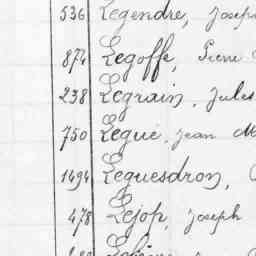 536 Legendre, Joseph
874 Legoffe, Pierre
238 Legrain, Jules
750 Legué, Jean M
1494 Leguesdron,
478 Lejop, Joseph